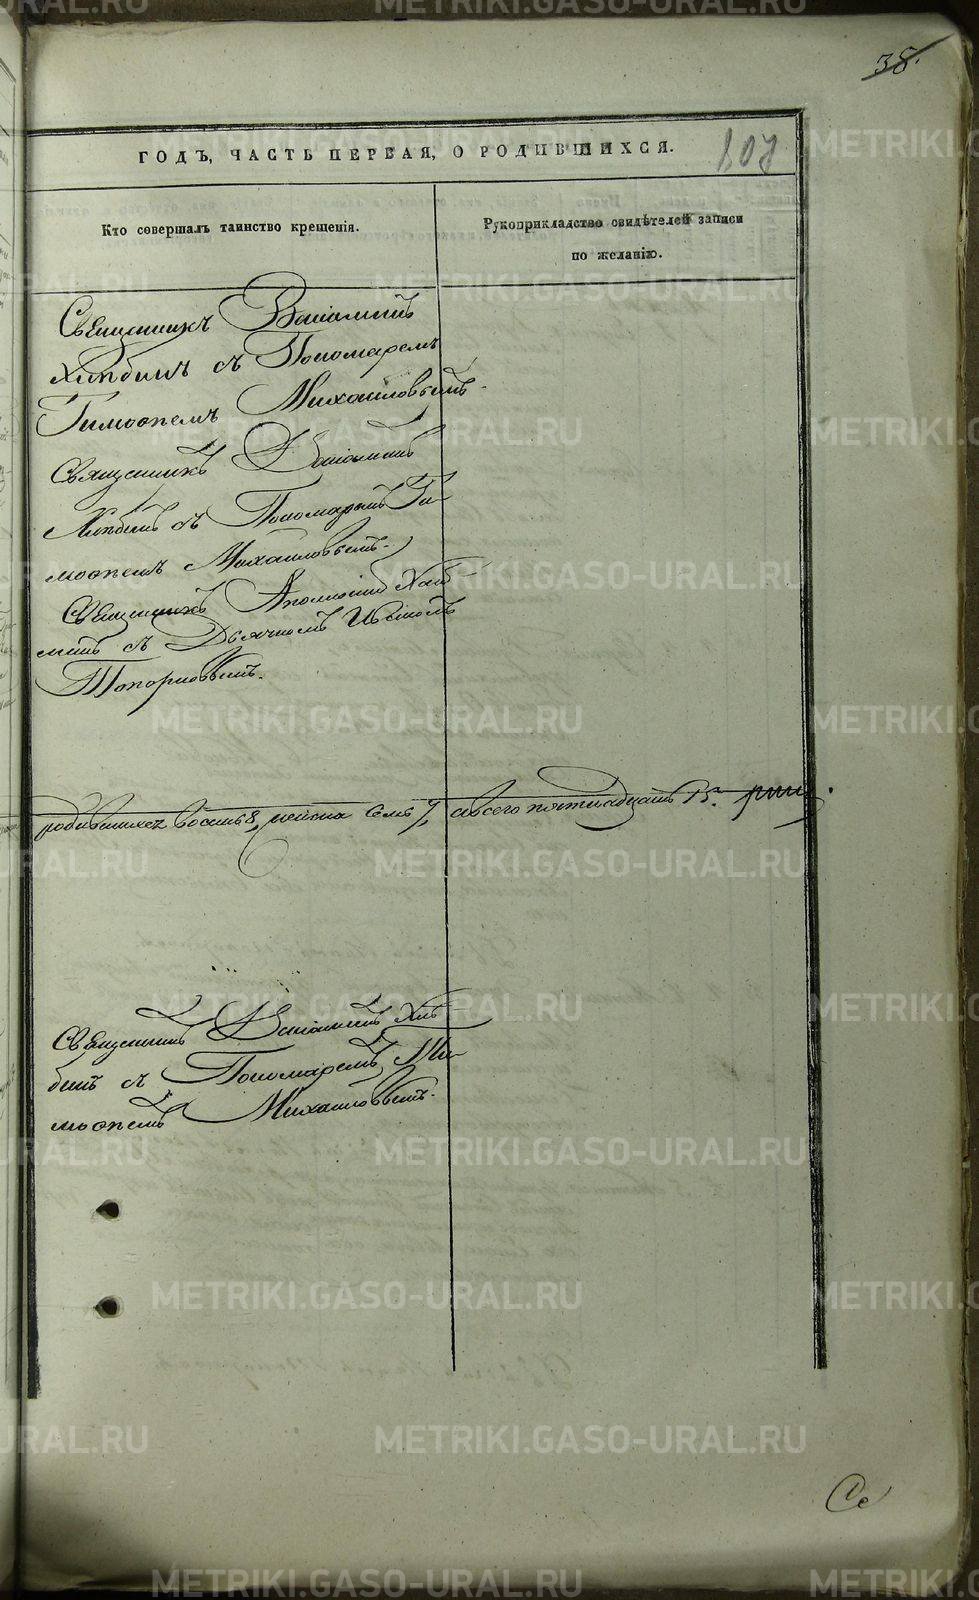 38.
ГОДЪ, ЧАСТЬ ПЕРВАЯ, О РОДИВШИХСЯ.
107
Кто совершалъ таинство крещенія.
Рукоприкладство свидѣтелей записи
по желанію.
Священникъ Веніаминъ
Хлѣбинъ съ Пономаремъ
Тимофеемъ Михаиловымъ.
Священникъ Веніаминъ
Хлѣбинъ съ Пономаремъ Ти-
мофеемъ Михаиловымъ.
Священникъ
съ Дьячкомъ
Топорковымъ.
родившихся восемь 8, семь 7, а всего пятнадцать 15.
Священникъ Веніаминъ Хлѣ
бинъ съ Пономаремъ Ти-
мофеемъ Михаиловымъ.
METRIKI.GASO-URAL.RU